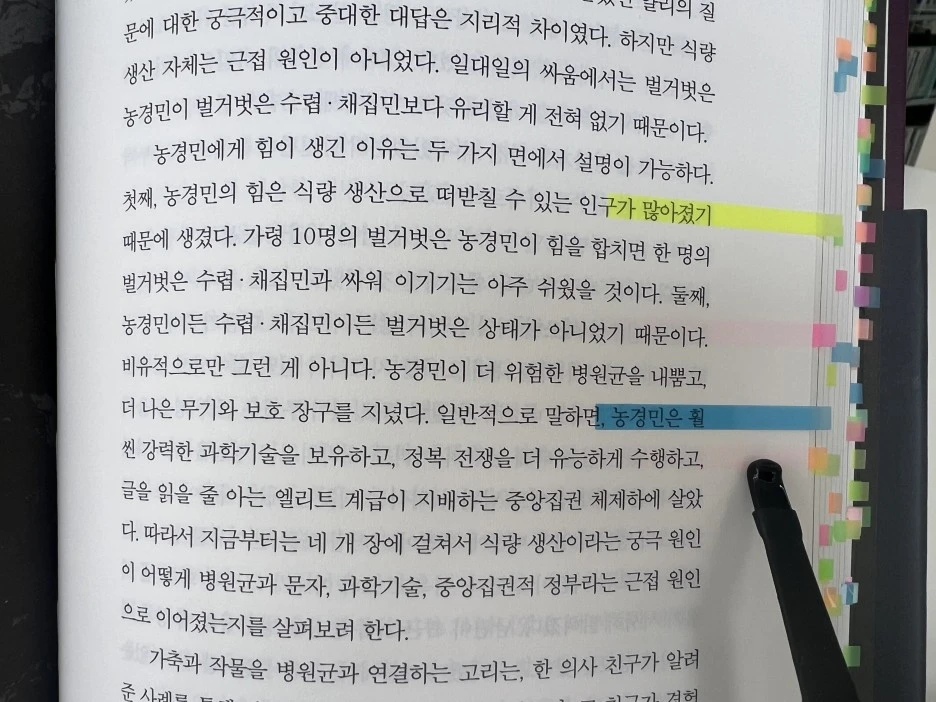 알리의 질
문에 대한 궁극적이고 중대한 대답은 지리적 차이였다. 하지만 식량
생산 자체는 근접 원인이 아니었다. 일대일의 싸움에서는 벌거벗은
농경민이 벌거벗은 수렵·채집민보다 유리할 게 전혀 없기 때문이다.
농경민에게 힘이 생긴 이유는 두 가지 면에서 설명이 가능하다.
첫째, 농경민의 힘은 식량 생산으로 떠받칠 수 있는 인구가 많아졌기
때문에 생겼다. 가령 10명의 벌거벗은 농경민이 힘을 합치면 한 명의
벌거벗은 수렵·채집민과 싸워 이기기는 아주 쉬웠을 것이다. 둘째,
농경민이든 수렵·채집민이든 벌거벗은 상태가 아니었기 때문이다.
비유적으로만 그런 게 아니다. 농경민이 더 위험한 병원균을 내뿜고,
더 나은 무기와 보호 장구를 지녔다. 일반적으로 말하면, 농경민은 훨
씬 강력한 과학기술을 보유하고, 정복 전쟁을 더 유능하게 수행하고,
글을 읽을 줄 아는 엘리트 계급이 지배하는 중앙집권 체제하에 살았
다. 따라서 지금부터는 네 개 장에 걸쳐서 식량 생산이라는 궁극 원인
이 어떻게 병원균과 문자, 과학기술, 중앙집권적 정부라는 근접 원인
으로 이어졌는지를 살펴보려 한다.
가축과 작물을 병원균과 연결하는 고리는, 한 의사 친구가 알려
준 사례를 친구가 경험